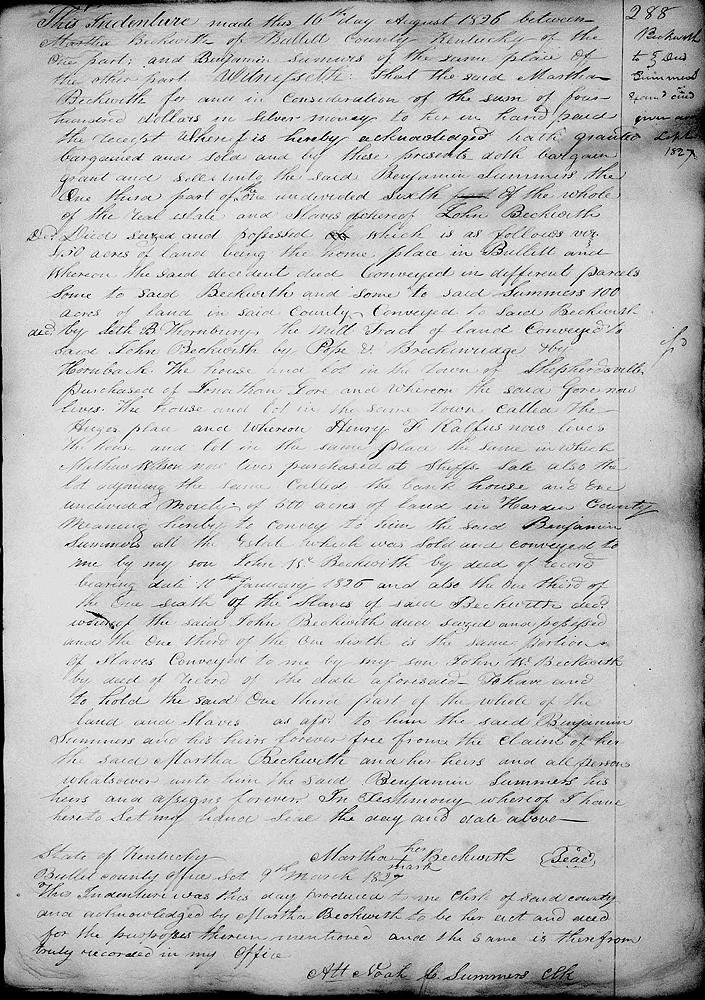 This Indenture made this 16th day August 1826 between
Martha Beckwith of Bullitt County Kentucky of the
One part; and Benjamin Sumers of the same place of
the other part Witnesseth: that the said Martha
Beckwith for and in Consideration of the sum of four
hundred dollars in silver money to her in hand paid
the receipt Whereof is hereby acknowledged hath granted
bargained and sold and by these presents doth bargain
grant and sell unto the said Benjamin Summers the
One third part of the one undivided sixth part Of the whole
of the real estate and Slaves whereof John Beckwith
Decd Died seized and possessed which is as follows viz
450 acres of land being the home place in Bullitt and
Whereon the said decedent died Conveyed in different parcels
Some to said Beckwith and some to said Summers 100
acres of land in said County Conveyed to said Beckwith
decd by Seth B. Thornbury, the Mill tract of land Conveyed to
said John Beckwith by Pope & Breckinridge & by
Hornback The house and lot in the town of Shepherdsville
purchased of Jonathan Gore and Whereon the said Gore now
lives The house and lot in the same town Called the
Huges place and Whereon Henry F Kalfus now lives
the house and lot in the same place the same in which
Mathew Wilson now lives purchased at Shffs Sale also the
lot adjoining the same Called the bank house and One
undivided Moiety of 500 acres of land in Harden County
Meaning hereby to Convey to him the said Benjamin
Summers all the Estate which was sold and conveyed to
me by my son John W. Beckwith by deed of record
bearing date 10th January 1826 and also the One third of
the One sixth of the Slaves of said Beckwith decd
whereof the said John Beckwith died seized and possessed
and the One third of the One sixth is the same portion
Of Slaves Conveyed to me by my son John W. Beckwith
by deed of record of the date aforesaid To have and
to hold the said One third part of the whole of the
land and Slaves as afsd to him the said Benjamin
Summers and his heirs forever free from the Claim of her
the said Martha Beckwith and her heirs and all person
Whatsoever unto him the said Benjamin Summers his
heirs and assigns forever In Testimony whereof I have
hereto Set my hand Seal the day and date above
her
Martha + Beckwith Seal
mark
State of Kentucky
Bullitt county Office Sct 9th March 1827
This Indenture was this day produced to me Clerk of said county
and acknowledged by Martha Beckwith to be her act and deed
for the purposes therein mentioned and the same is therefrom
truly recorded in my Office
Att Noah C Summers Clk
288
Beckwith
to Deed
Summers
Exand and
given
1827